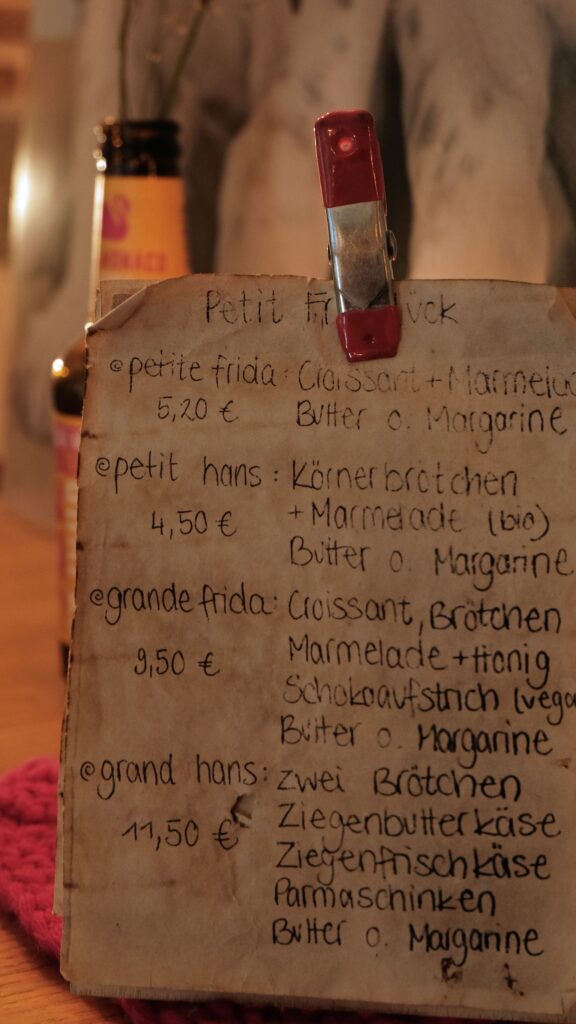 Petit Fr ück
@petite frida: Croissant + Marmelad
5,20 € Butter o. Margarine
@petit hans: Körnerbrötchen
4,50 € + Marmelade (bio)
Butter o. Margarine
@grande frida: Croissant, Brötchen
9,50 € Marmelade + Honig
Schokoaufstrich (vega
Butter o. Margarine
@grand hans: zwei Brötchen
11,50 € Ziegenbutterkäse
Ziegenfrischkäse
Parmaschinken
Butter o. Margarine